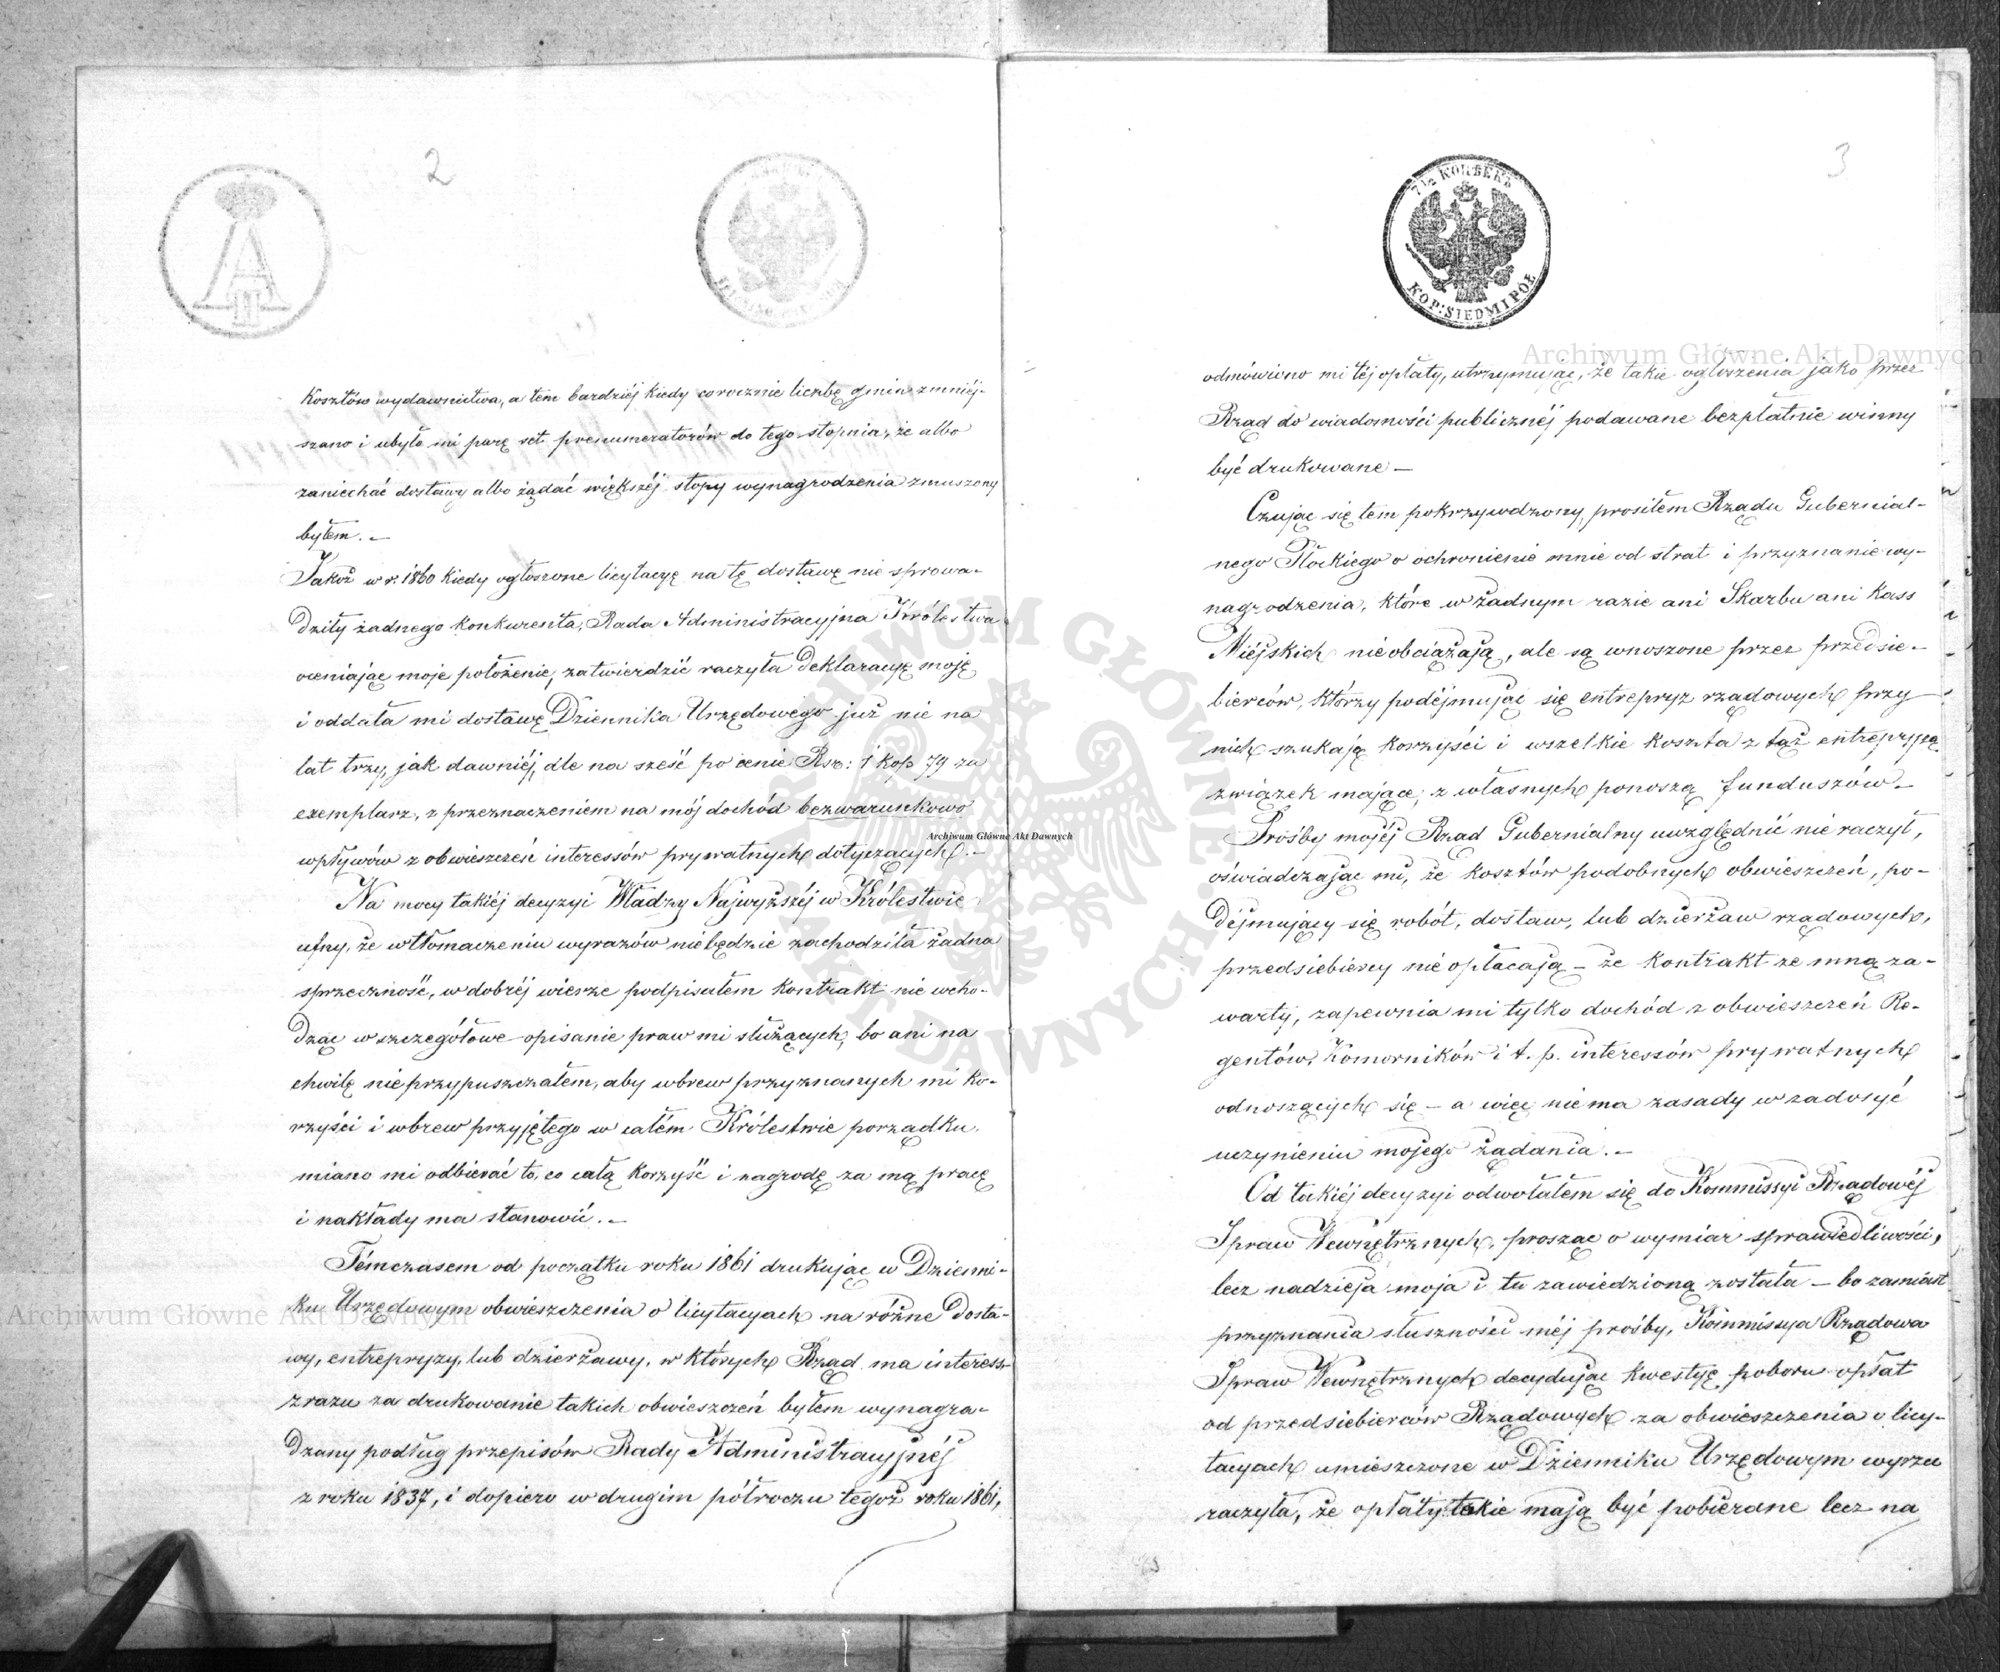 2
kosztów wydawnictwa, a tem bardziéj kiedy corocznie liczbę gmin zmniéj-
szano i ubyło mi parę set prenumeratorów do tego stopnia, że albo
zaniechać dostawy albo żądać większéj stopy wynagrodzenia zmuszony
byłem. –
Jakoż w r. 1860 kiedy ogłoszone licytacye na tę dostawę nie sprowa-
dziły żadnego konkurenta, Rada Administracyjna Królestwa
oceniając moje położenie, zatwierdzić raczyła deklaracyę moję
i oddała mi dostawę Dziennika Urzędowego już nie na
lat trzy, jak dawniéj, ale na sześć po cenie Rsr: 1 kop 79 za
exemplarz, z przeznaczeniem na mój dochód bezwarunkowo
wpływów z obwieszczeń interessów prywatnych dotyczących. –
Na mocy takiéj decyzyi Władzy Najwyższéj w Królestwie
ufny, że w tłomaczeniu wyrazów nie będzie zachodziła żadna
sprzeczność, w dobréj wierze podpisałem kontrakt nie wcho-
dząc w szczegółowe opisanie praw mi służących, bo ani na
chwilę nie przypuszczałem, aby wbrew przyznanych mi ko-
rzyści i wbrew przyjętego w całém Królestwie porządku,
miano mi odbierać to, co całą korzyść i nagrodę za mą pracę
i nakłady ma stanowić. –
Témczasem od początku roku 1861 drukując w Dzienni-
ku Urzędowym obwieszczenia o licytacyach na różne dosta-
wy, entrepryzy, lub dzierżawy, w których Rząd ma interess
zrazu za drukowanie takich obwieszczeń byłem wynagra-
dzany podług przepisów Rady Administracyjnéj
z roku 1837, i dopiero w drugim półroczu tegoż roku 1861,
3
7½ КОПѢЕКЪ
KOP: SIEDM I PÓŁ
odmówiono mi téj opłaty, utrzymując, że takie ogłoszenia jako przez
Rząd do wiadomości publicznéj podawane bezpłatnie winny
być drukowane –
Czując się tem pokrzywdzony, prosiłem Rządu Gubernial-
nego Płockiego o ochronienie mnie od strat i przyznanie wy-
nagrodzenia, które w żadnym razie ani Skarbu ani Kass
Miéjskich nie obciążają, ale są wnoszone przez przedsie-
bierców, którzy podéjmując się entrepryz rządowych przy
nich szukają korzyści i wszelkie koszta z taż entrepryzą
związek mające, z własnych ponoszą funduszów –
Prośby mojéj Rząd Gubernialny uwzględnić nie raczył,
oświadczając mi, że kosztów podobnych obwieszczeń, po-
déjmujący się robót, dostaw, lub dzierżaw rządowych,
przedsiebiercy nie opłacają – że kontrakt ze mną za-
warty, zapewnia mi tylko dochód z obwieszczeń Re-
gentów, Komorników i t. p. interessów prywatnych
odnoszących się – a więc nie ma zasady w zadosyć
uczynieniu mojego żądania. –
Od takiéj decyzyi odwołałem się do Kommissyi Rządowéj
Spraw Wewnętrznych, prosząc o wymiar sprawiedliwości,
lecz nadzieja moja i tu zawiedzioną została – bo zamiast
przyznania słuszności méj prośby, Kommissya Rządowa
Spraw Wewnętrznych decydując kwestyę poboru opłat
od przedsiebierców Rządowych za obwieszczenia o licy-
tacyach umieszczone w Dzienniku Urzędowym wyrzec
raczyła, że opłaty takie mają być pobierane lecz na
Archiwum Główne Akt Dawnych
Archiwum Główne Akt Dawnych
Archiwum Główne Akt Dawnych
ARCHIWUM GŁÓWNE AKT DAWNYCH